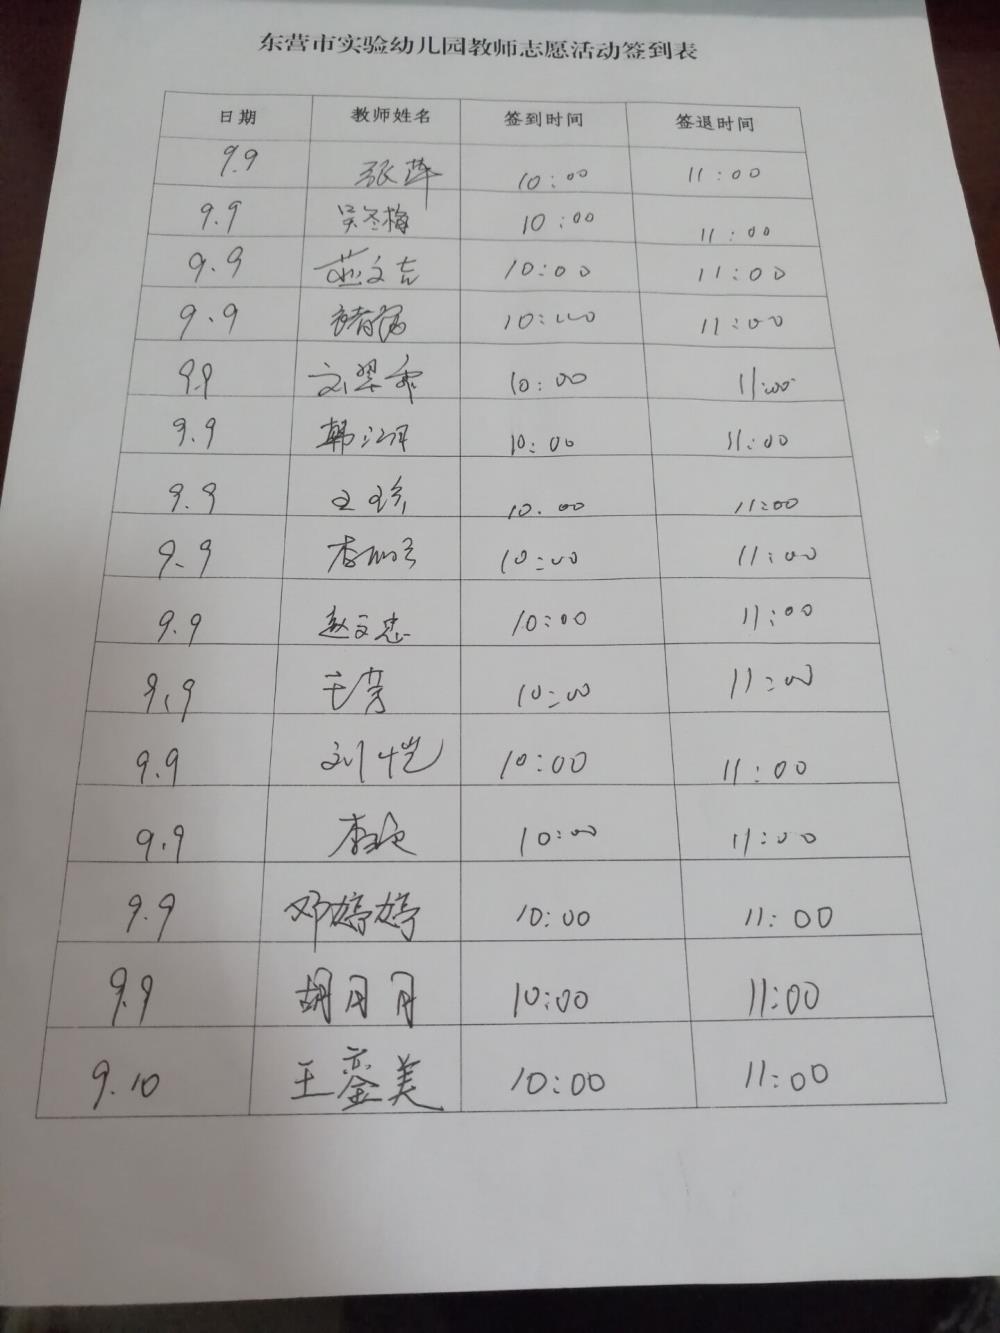 东营市实验幼儿园教师志愿活动签到表
日期 教师姓名 签到时间 签退时间
9.9 张萍 10:00 11:00
9.9 吴冬梅 10:00 11:00
9.9 燕文吉 10:00 11:00
9.9 10:00 11:00
9.9 刘翠 10:00 11:00
9.9 韩 10:00 11:00
9.9 王珍 10.00 11:00
9.9 李 10:00 11:00
9.9 赵文忠 10:00 11:00
9.9 王芳 10:00 11:00
9.9 刘恺 10:00 11:00
9.9 李 10:00 11:00
9.9 邓婷婷 10:00 11:00
9.9 胡月月 10:00 11:00
9.10 王銮美 10:00 11:00